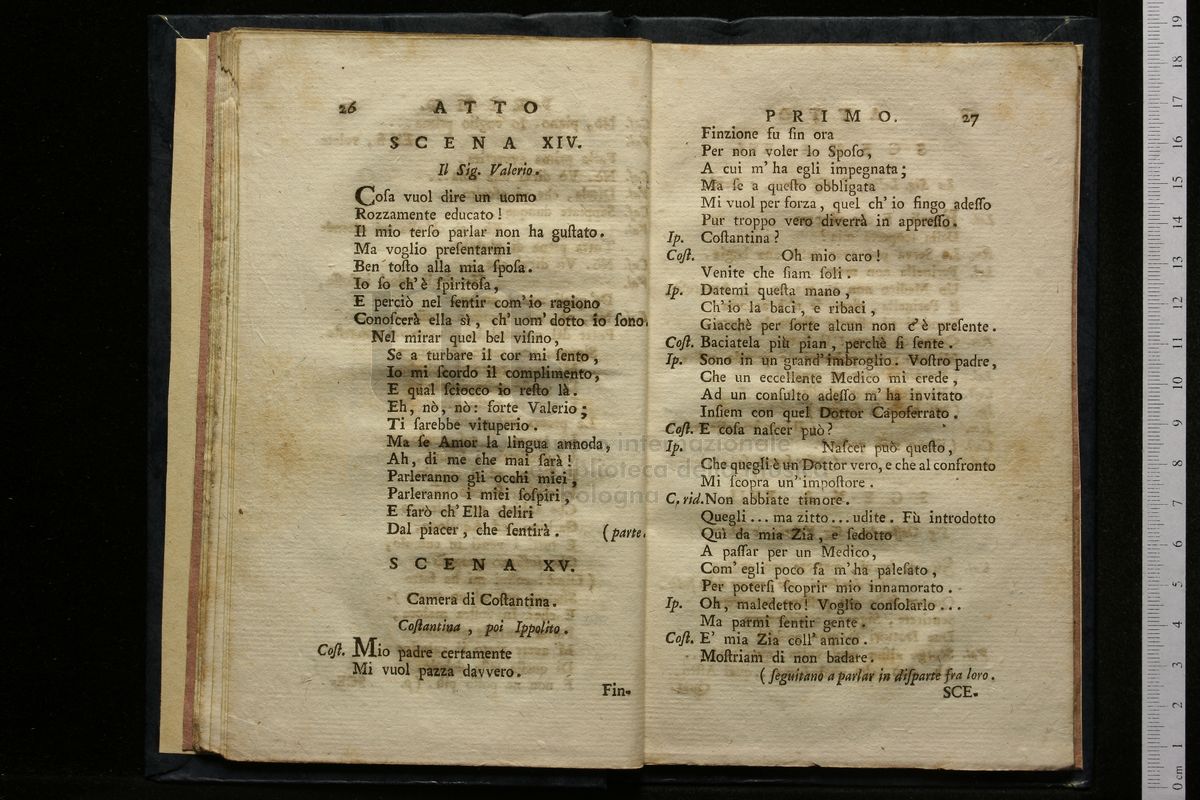 26 ATTO
SCENA XIV.
Il Sig. Valerio.
Coſa vuol dire un uomo
Rozzamente educato!
Il mio terſo parlar non ha guſtato.
Ma voglio preſentarmi
Ben toſto alla mia ſpoſa.
Io ſo ch'è ſpiritoſa,
E perciò nel ſentir com'io ragiono
Conoſcerà ella sì, ch'uom' dotto io ſono.
Nel mirar quel bel viſino,
Se a turbare il cor mi ſento,
Io mi ſcordo il complimento,
E qual ſciocco io reſto là.
Eh, nò, nò: forte Valerio;
Ti ſarebbe vituperio.
Ma ſe Amor la lingua annoda,
Ah, di me che mai ſarà!
Parleranno gli occhi miei,
Parleranno i miei ſoſpiri,
E farò ch'Ella deliri
Dal piacer, che ſentirà. (parte.
SCENA XV.
Camera di Coſtantina.
Coſtantina, poi Ippolito.
Coſt. Mio padre certamente
Mi vuol pazza davvero.
Fin-
PRIMO. 27
Finzione fu ſin ora
Per non voler lo Spoſo,
A cui m'ha egli impegnata;
Ma ſe a queſto obbligata
Mi vuol per forza, quel ch'io fingo adeſſo
Pur troppo vero diverrà in appreſſo.
Ip. Coſtantina?
Coſt. Oh mio caro!
Venite che ſiam ſoli.
Ip. Datemi queſta mano,
Ch'io la baci, e ribaci,
Giacchè per ſorte alcun non c'è preſente.
Coſt. Baciatela più pian, perchè ſi ſente.
Ip. Sono in un grand'imbroglio. Voſtro padre,
Che un eccellente Medico mi crede,
Ad un conſulto adeſſo m'ha invitato
Inſiem con quel Dottor Capoferrato.
Coſt. E coſa naſcer può?
Ip. Naſcer può queſto,
Che quegli è un Dottor vero, e che al confronto
Mi ſcopra un'impoſtore.
C. rid. Non abbiate timore.
Quegli... ma zitto... udite. Fù introdotto
Quì da mia Zia, e ſedotto
A paſſar per un Medico,
Com'egli poco fa m'ha paleſato,
Per poterſi ſcoprir mio innamorato.
Ip. Oh, maledetto! Voglio conſolarlo...
Ma parmi ſentir gente.
Coſt. E' mia Zia coll'amico.
Moſtriam di non badare.
(ſeguitano a parlar in diſparte fra loro.
SCE-